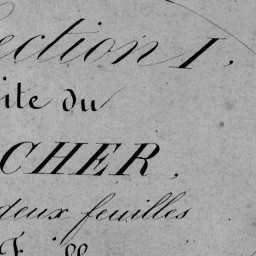 ection I.
ite du
CHER,
deux feuilles